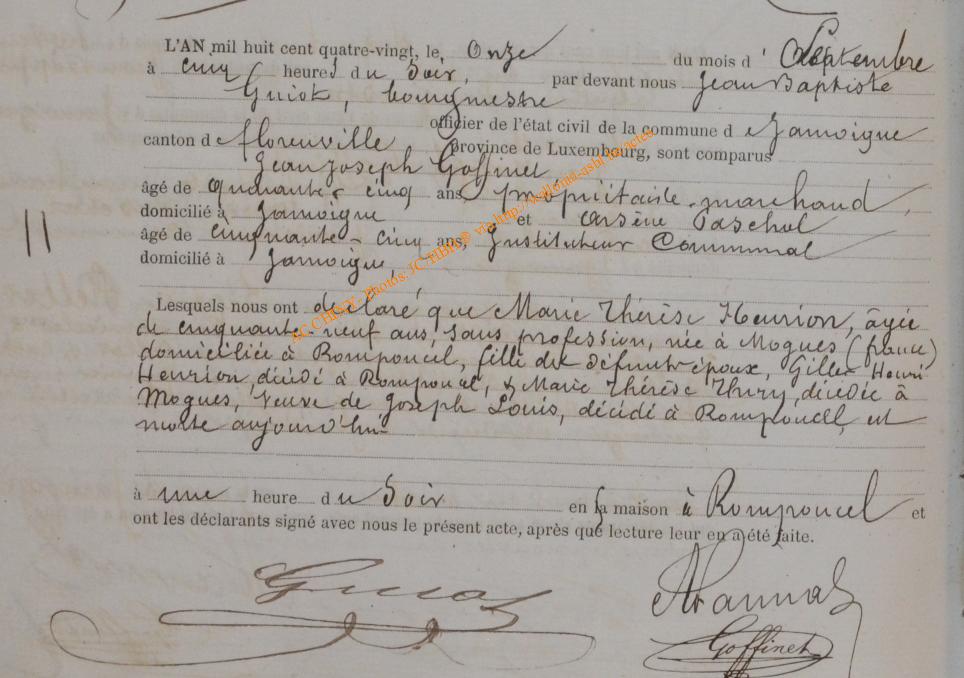 L'AN mil huit cent quatre-vingt, le, Onze du mois d' Septembre
à cinq heures du Soir, par devant nous Jean Baptiste
Guiot, bourgmestre
officier de l'état civil de la commune de Jamoigne
canton de florenville province de Luxembourg, sont comparus
Jean Joseph Goffinet
âgé de quarante-cinq ans, propriétaire-marchand,
domicilié à Jamoigne et Arsène Paschal
11
âgé de cinquante-cinq ans, Instituteur Communal
domicilié à Jamoigne,
Lesquels nous ont déclaré que Marie Thérèse Henrion, âgée
de cinquante-neuf ans, sans profession, née à Mogues (france)
domiciliée à Romponcel, fille des défunts époux, Gilles Henri
Henrion décédé à Romponcel, & Marie Thérèse Thiry, décédée à
Mogues, veuve de Joseph Louis, décédé à Romponcel, est
morte aujourd'hui
à une heure du Soir en sa maison à Romponcel et
ont les déclarants signé avec nous le présent acte, après que lecture leur en a été faite.
Guiot
Goffinet